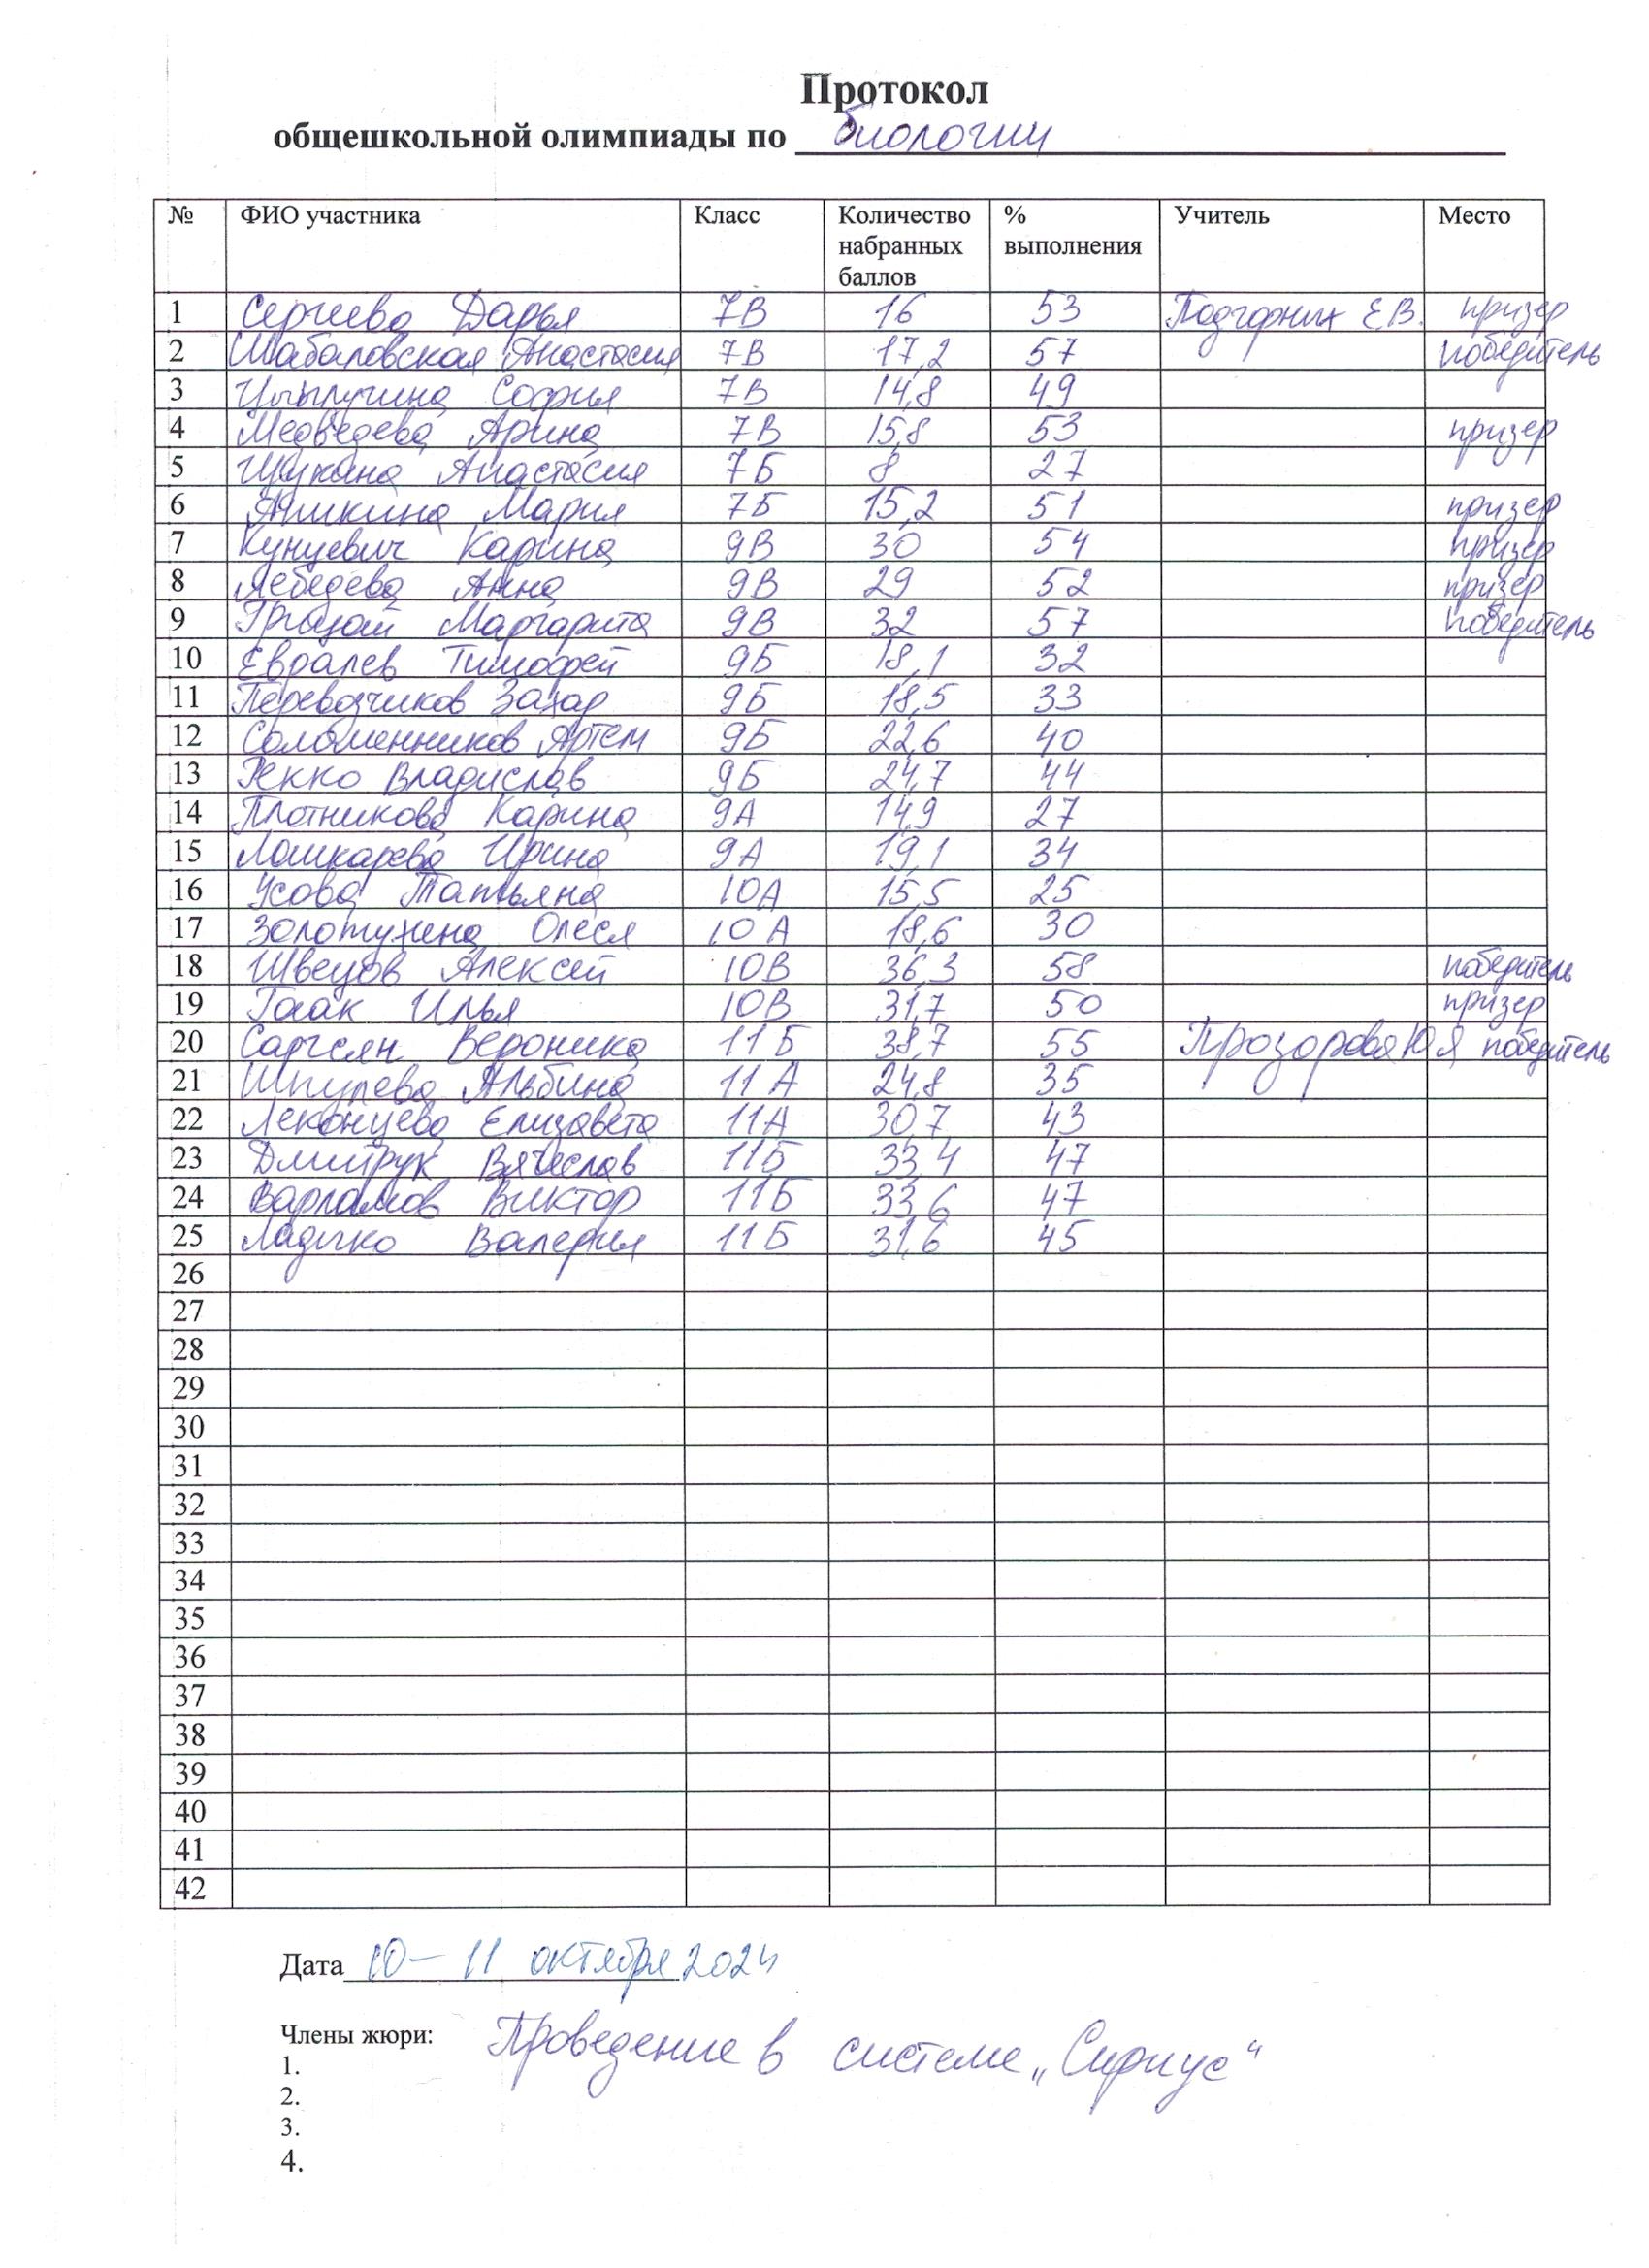 Протокол
общешкольной олимпиады по биологии
№ ФИО участника Класс Количество набранных баллов % выполнения Учитель Место
1 Сергиева Дарья 7В 16 53 Подгорных Е.В. призер
2 Шабаловская Анастасия 7В 17,2 57 победитель
3 София 7В 14,8 49
4 Медведева Арина 7В 15,8 53 призер
5 Щукина Анастасия 7Б 8 27
6 Аникина Мария 7Б 15,2 51 призер
7 Кунцевич Карина 9В 30 54 призер
8 Лебедева Анна 9В 29 52 призер
9 Маргарита 9В 32 57 победитель
10 Евралев Тимофей 9Б 18,1 32
11 Перевозчиков Захар 9Б 18,5 33
12 Соломенников Артем 9Б 22,6 40
13 Рекко Владислав 9Б 24,7 44
14 Плотникова Карина 9А 14,9 27
15 Лошкарева Ирина 9А 19,1 34
16 Усова Татьяна 10А 15,5 25
17 Золотухина Олеся 10А 18,6 30
18 Швецов Алексей 10В 36,3 58 победитель
19 Гаак Илья 10В 31,7 50 призер
20 Саргсян Вероника 11Б 38,7 55 Прозорова Ю Я победитель
21 Шпулева Альбина 11А 24,8 35
22 Леконцева Елизавета 11А 30,7 43
23 Дмитрук Вячеслав 11Б 33,4 47
24 Варламов Виктор 11Б 33,6 47
25 Ладыко Валерия 11Б 31,6 45
26
27
28
29
30
31
32
33
34
35
36
37
38
39
40
41
42
Дата 10-11 октября 2024
Члены жюри: Проведение в системе „Сириус“
1.
2.
3.
4.